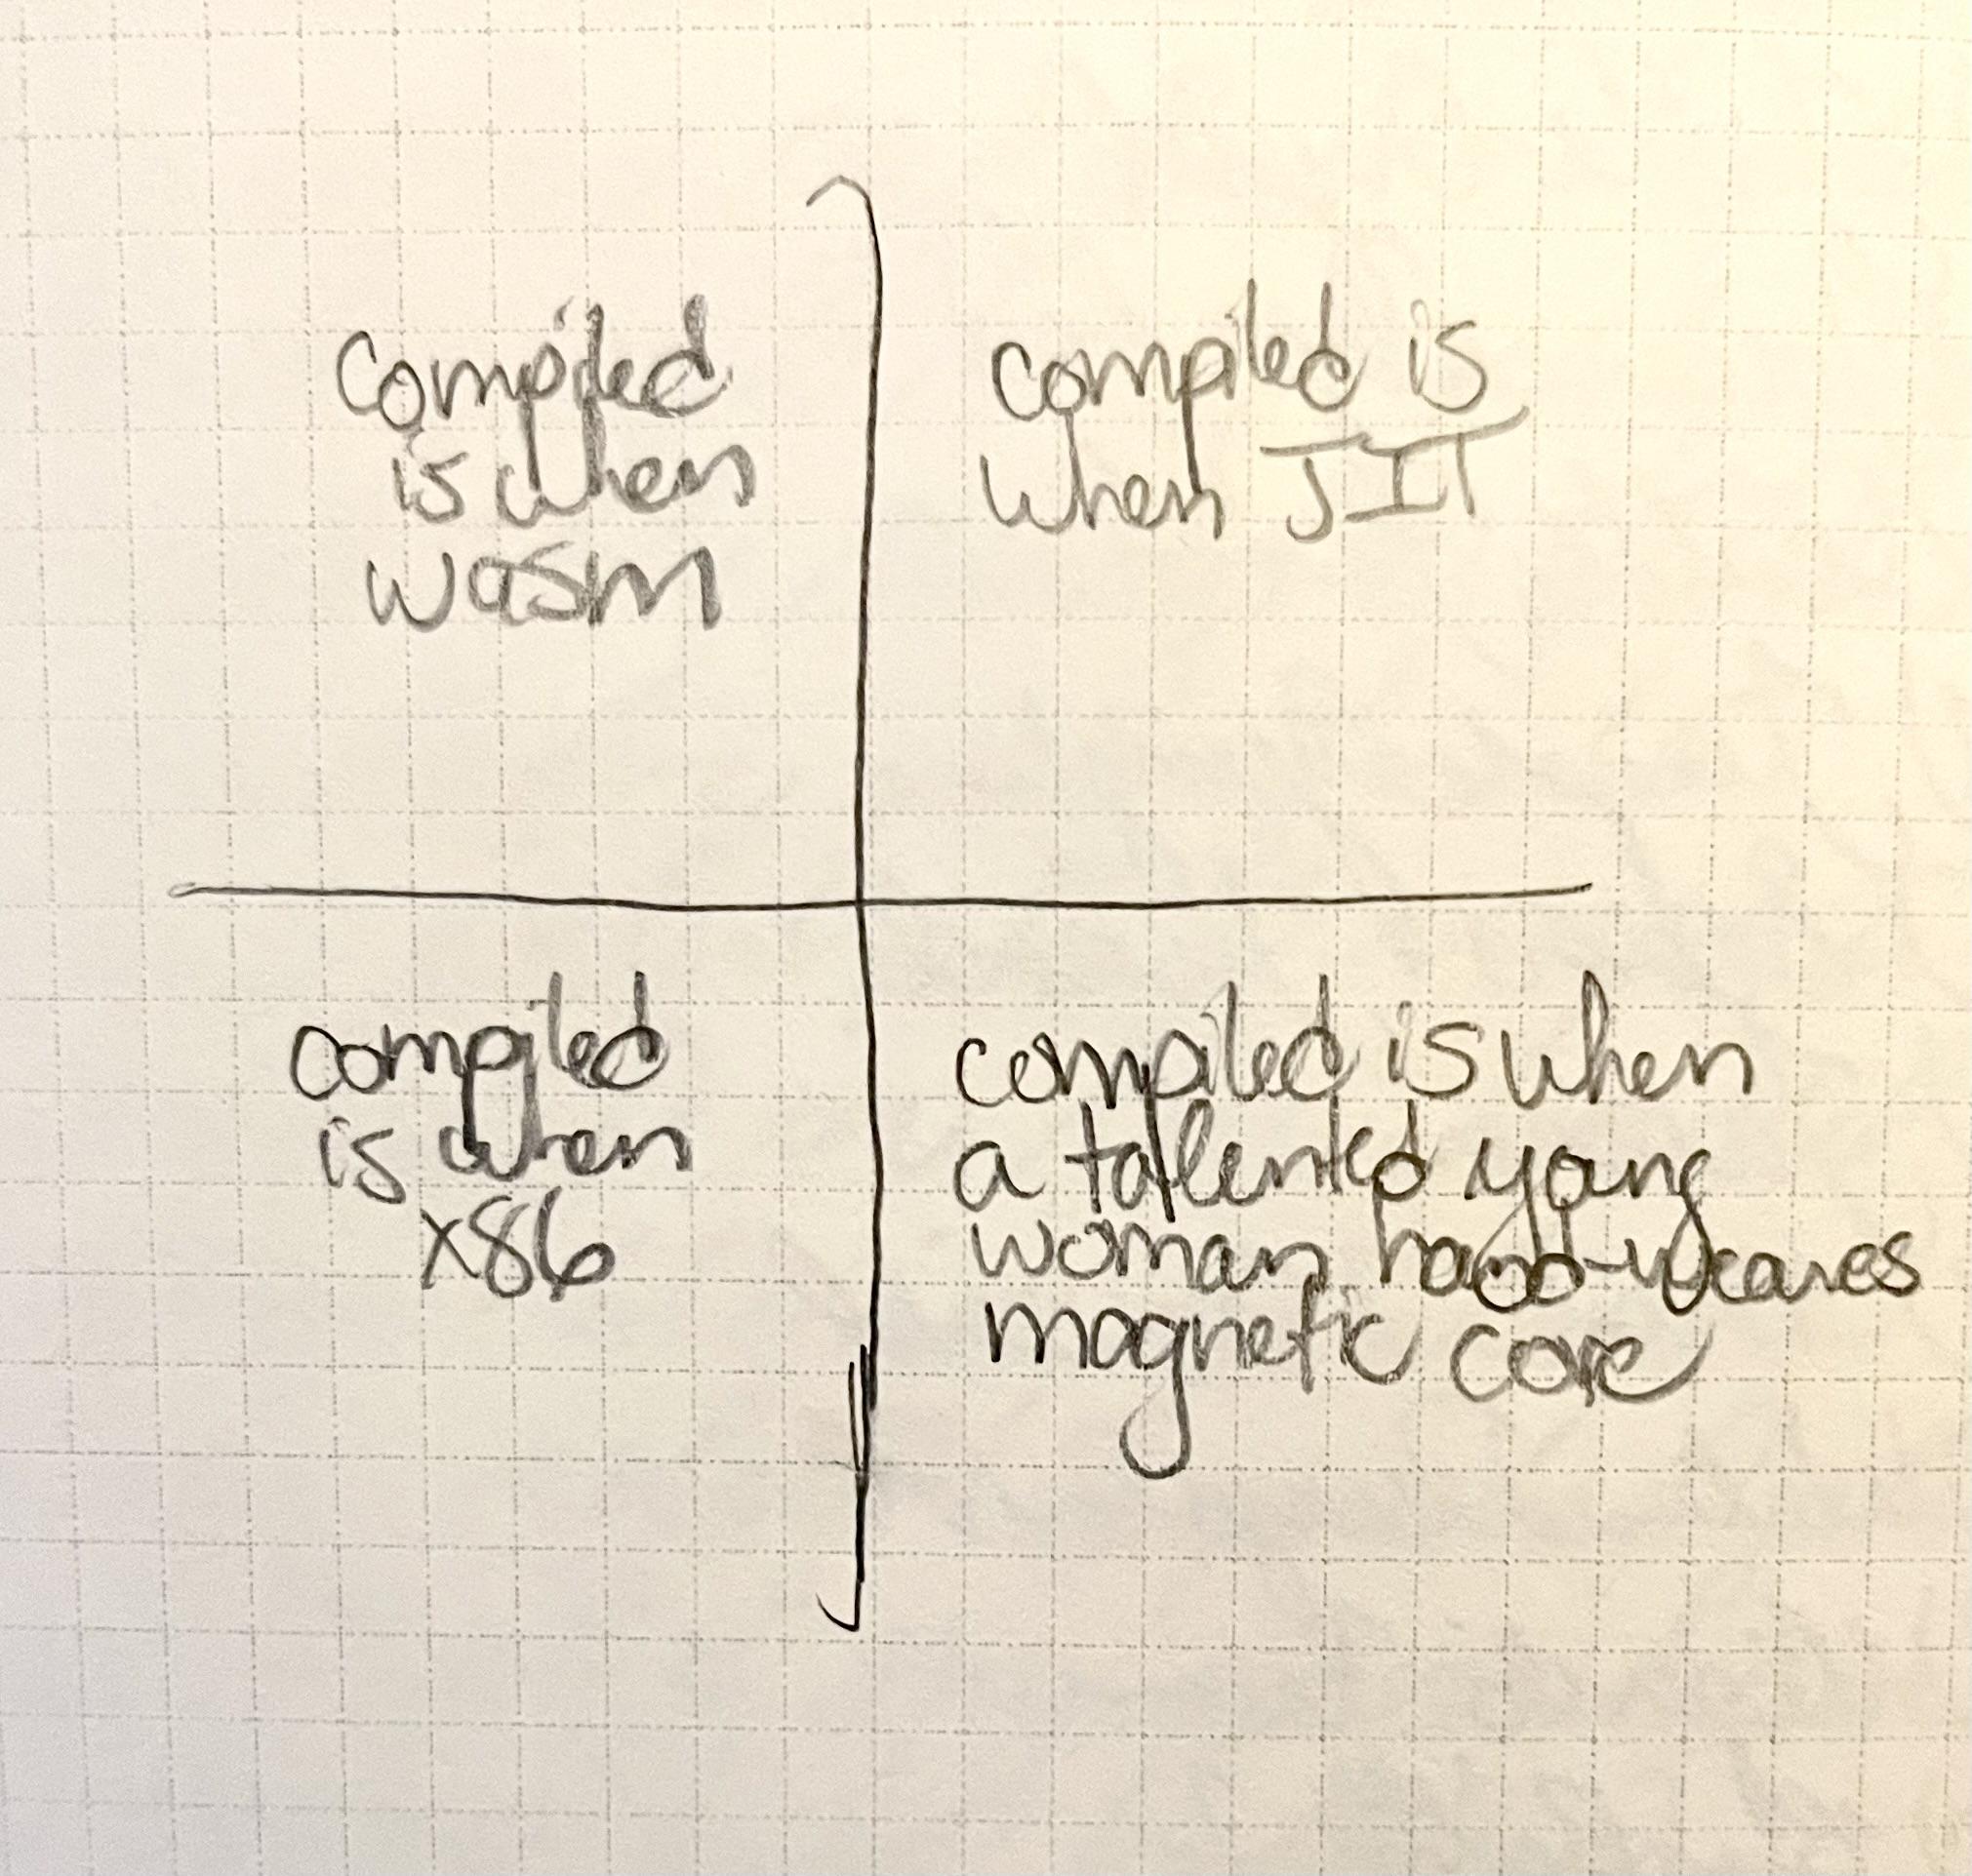 compiled
is when
wasm
compiled is
when JIT
compiled
is when
x86
compiled is when
a talented young
woman hand-weaves
magnetic core